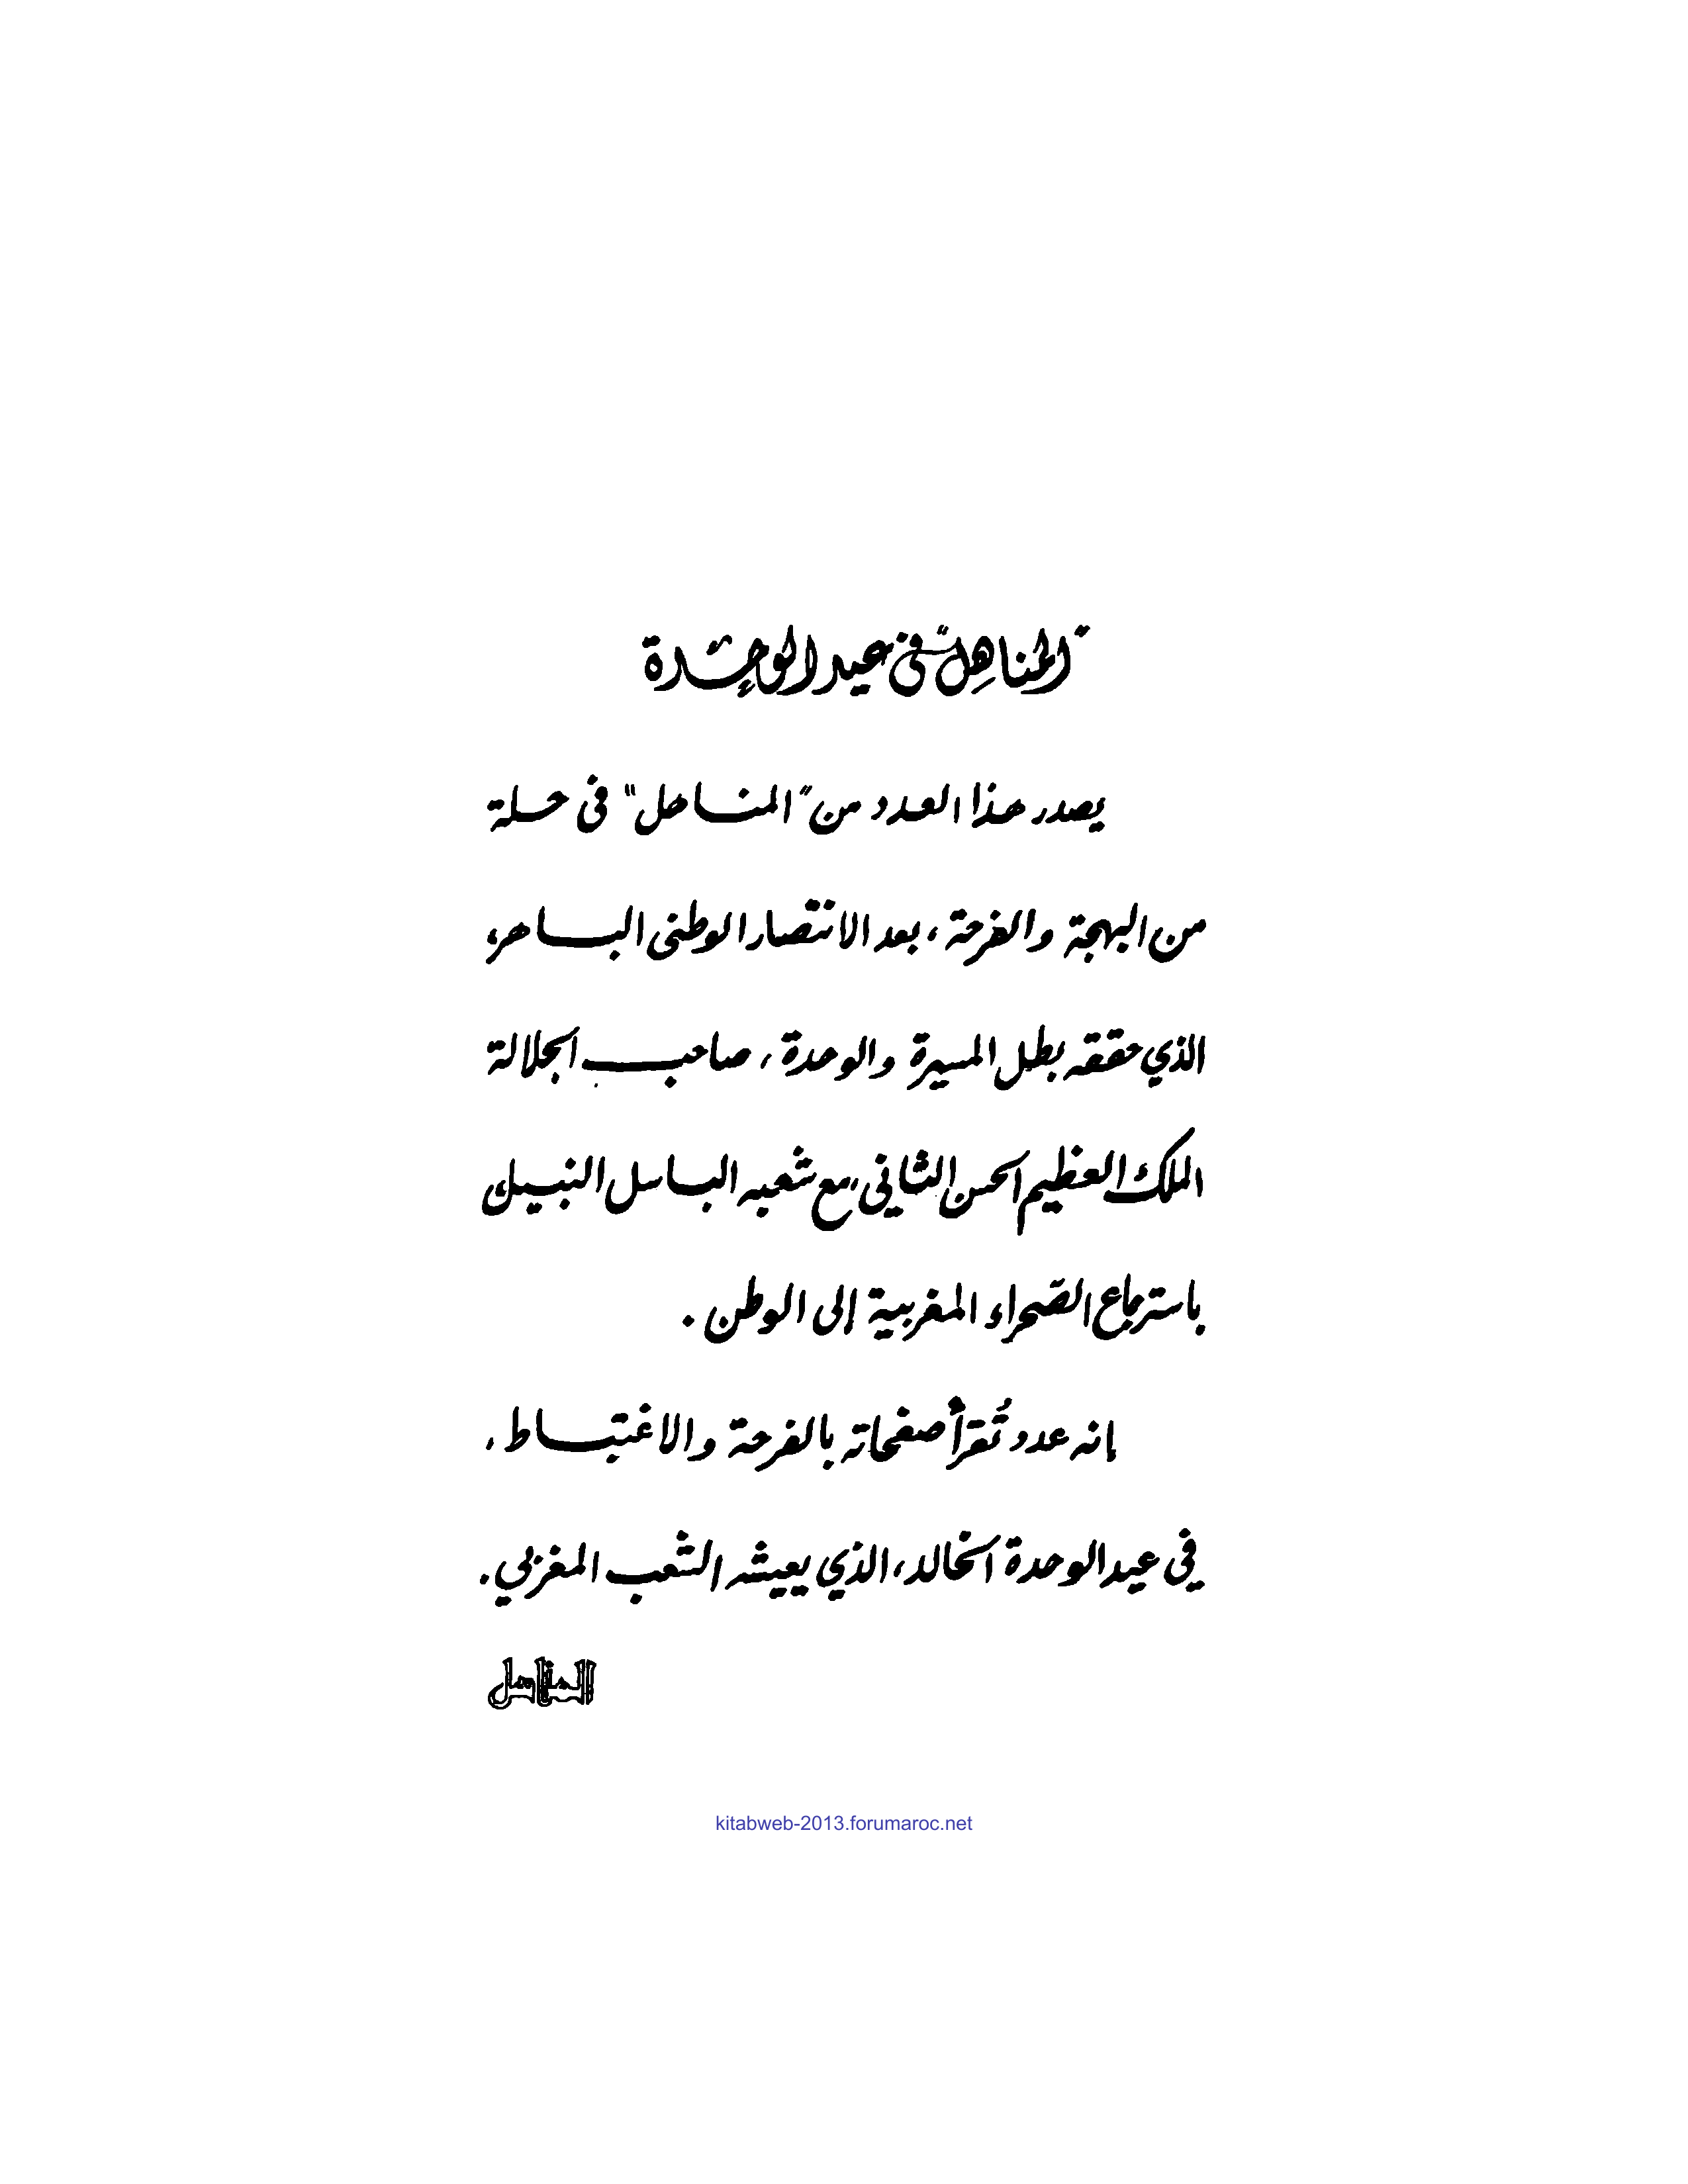 "المناهل" في عيد الوحدة
يصدر هذا العدد من "المناهل" في حلة
من البهجة والفرحة، بعد الانتصار الوطني الباهر،
الذي حققه بطل المسيرة والوحدة، صاحب الجلالة
الملك العظيم الحسن الثاني، مع شعبه الباسل النبيل
باسترجاع الصحراء المغربية إلى الوطن.
إنه عدد تُقرأ صفحاته بالفرحة والاغتباط،
في عيد الوحدة الخالد، الذي يعيشه الشعب المغربي.
المناهل
kitabweb-2013.forumaroc.net